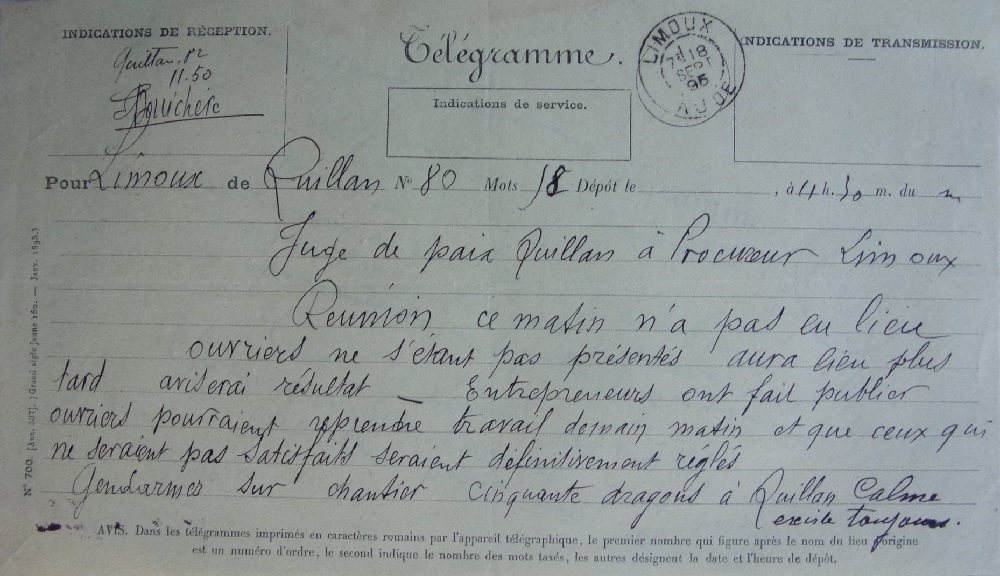 INDICATIONS DE RÉCEPTION.
11.50
Télégramme.
Indications de service.
LIMOUX
18
95
AUDE
INDICATIONS DE TRANSMISSION.
Pour Limoux de Quillan N° 80 Mots 18 Dépôt le , à 4 h. 30 m. du m
Juge de paix Quillan à Procureur Limoux
Réunion ce matin n'a pas eu lieu
ouvriers ne s'étant pas présentés aura lieu plus
tard aviserai résultat — Entrepreneurs ont fait publier
ouvriers pourraient reprendre travail demain matin et que ceux qui
ne seraient pas satisfaits seraient définitivement réglés
Gendarmes sur chantier cinquante dragons à Quillan Calme
existe toujours.
AVIS. Dans les télégrammes imprimés en caractères romains par l'appareil télégraphique, le premier nombre qui figure après le nom du lieu d'origine
est un numéro d'ordre, le second indique le nombre des mots taxés, les autres désignent la date et l'heure de dépôt.
N° 700.